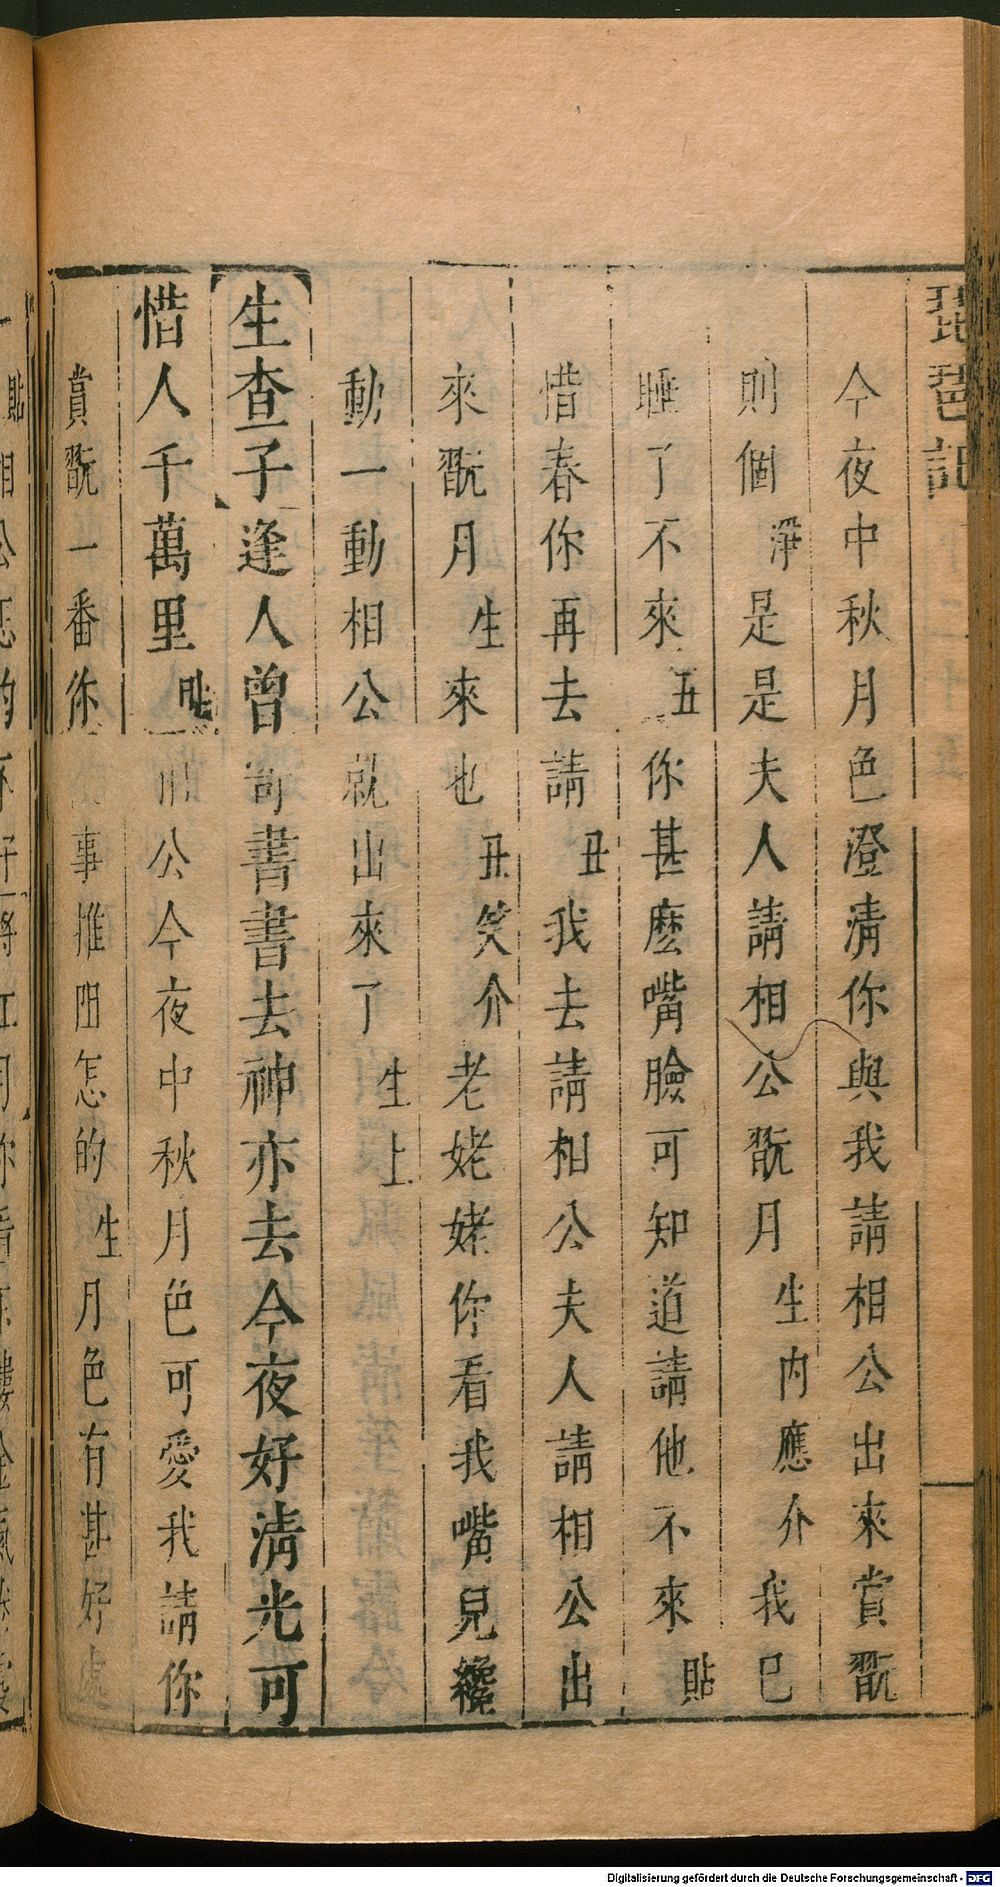 琵琶記
今夜中秋月色澄清你與我請相公出來賞翫
則個淨是是夫人請相公翫月生內應介我已
睡了不來丑你甚麽嘴臉可知道請他不來貼
惜春你再去請丑我去請相公夫人請相公出
來翫月生來也丑笑介老姥姥你看我嘴兒纔
動一動相公就出來了生上
生查子逢人曾寄書書去神亦去今夜好清光可
惜人千萬里貼相公今夜中秋月色可愛我請你
賞翫一番你事推阻怎的生月色有甚好處
Digitalisierung gefördert durch die Deutsche Forschungsgemeinschaft - DFG